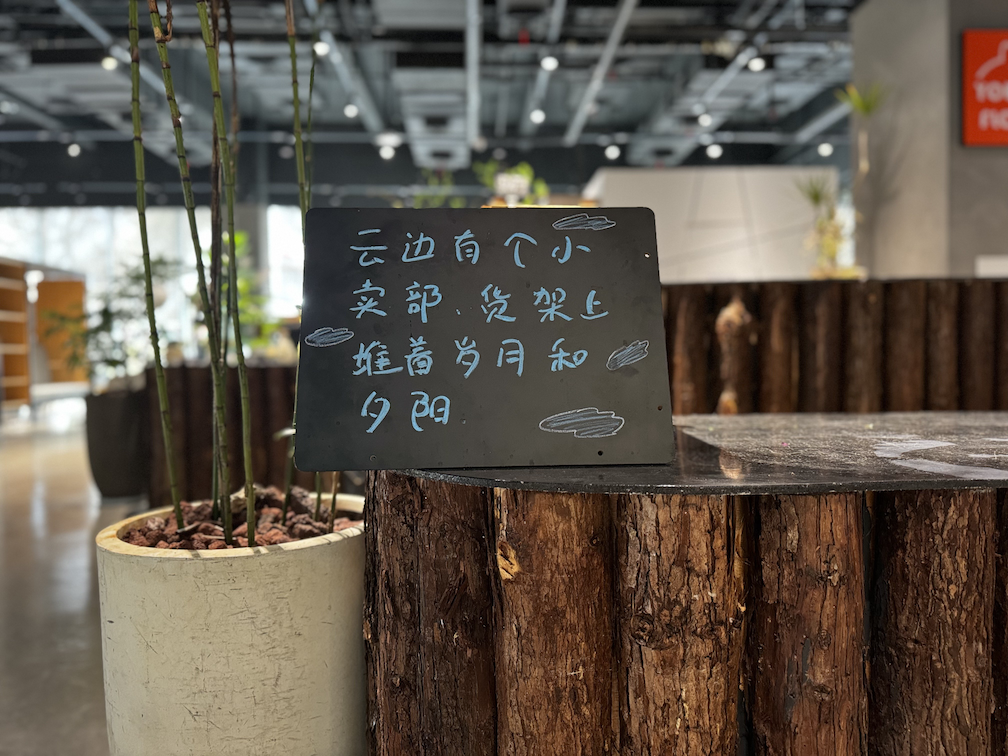 云边有个小
卖部.货架上
堆着岁月和
夕阳